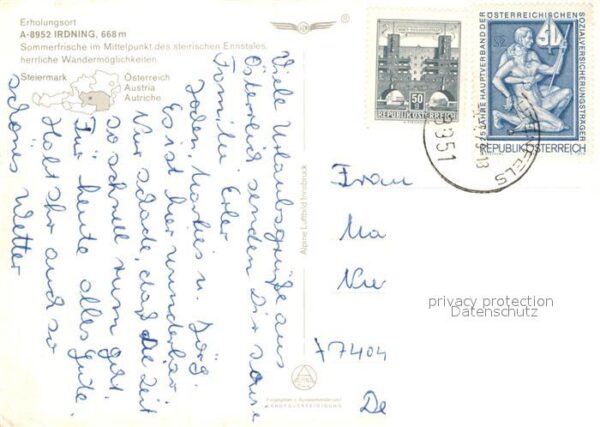 Erholungsort
A-8952 IRDNING, 668 m
Sommerfrische im Mittelpunkt des steirischen Ennstales,
herrliche Wandermöglichkeiten
Steiermark
Österreich
Austria
Autriche
50 g
REPUBLIK ÖSTERREICH
25 JAHRE HAUPTVERBAND DER ÖSTERREICHISCHEN SOZIALVERSICHERUNGSTRÄGER
S2
REPUBLIK ÖSTERREICH
8951
Viele Urlaubsgrüße aus
Österreich senden Dir sowie
Familie Erler
Marlies u. Jörg.
Es ist hier wunderbar
Nur schade, daß die Zeit
so schnell rum geht.
Für heute alles Gute.
Habt Ihr auch so
schönes Wetter
Alpine Luftbild Innsbruck
Frau
Ma
Neu
77404
De
privacy protection
Datenschutz